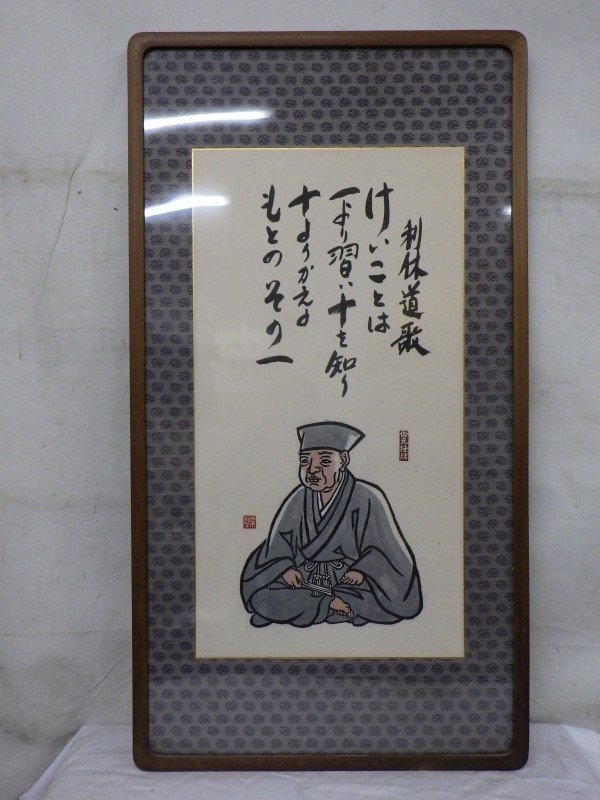 利休道歌
けいことは
一より習い十を知り
十よりかえる
もとのその一